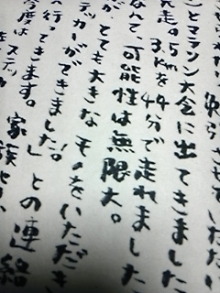 とマラソン大会に出てきました
走。5kmを44分で走れました
なんて可能性は無限大。
とても大きなものをいただき
カーができました！
行ってきます。 との連絡
家族